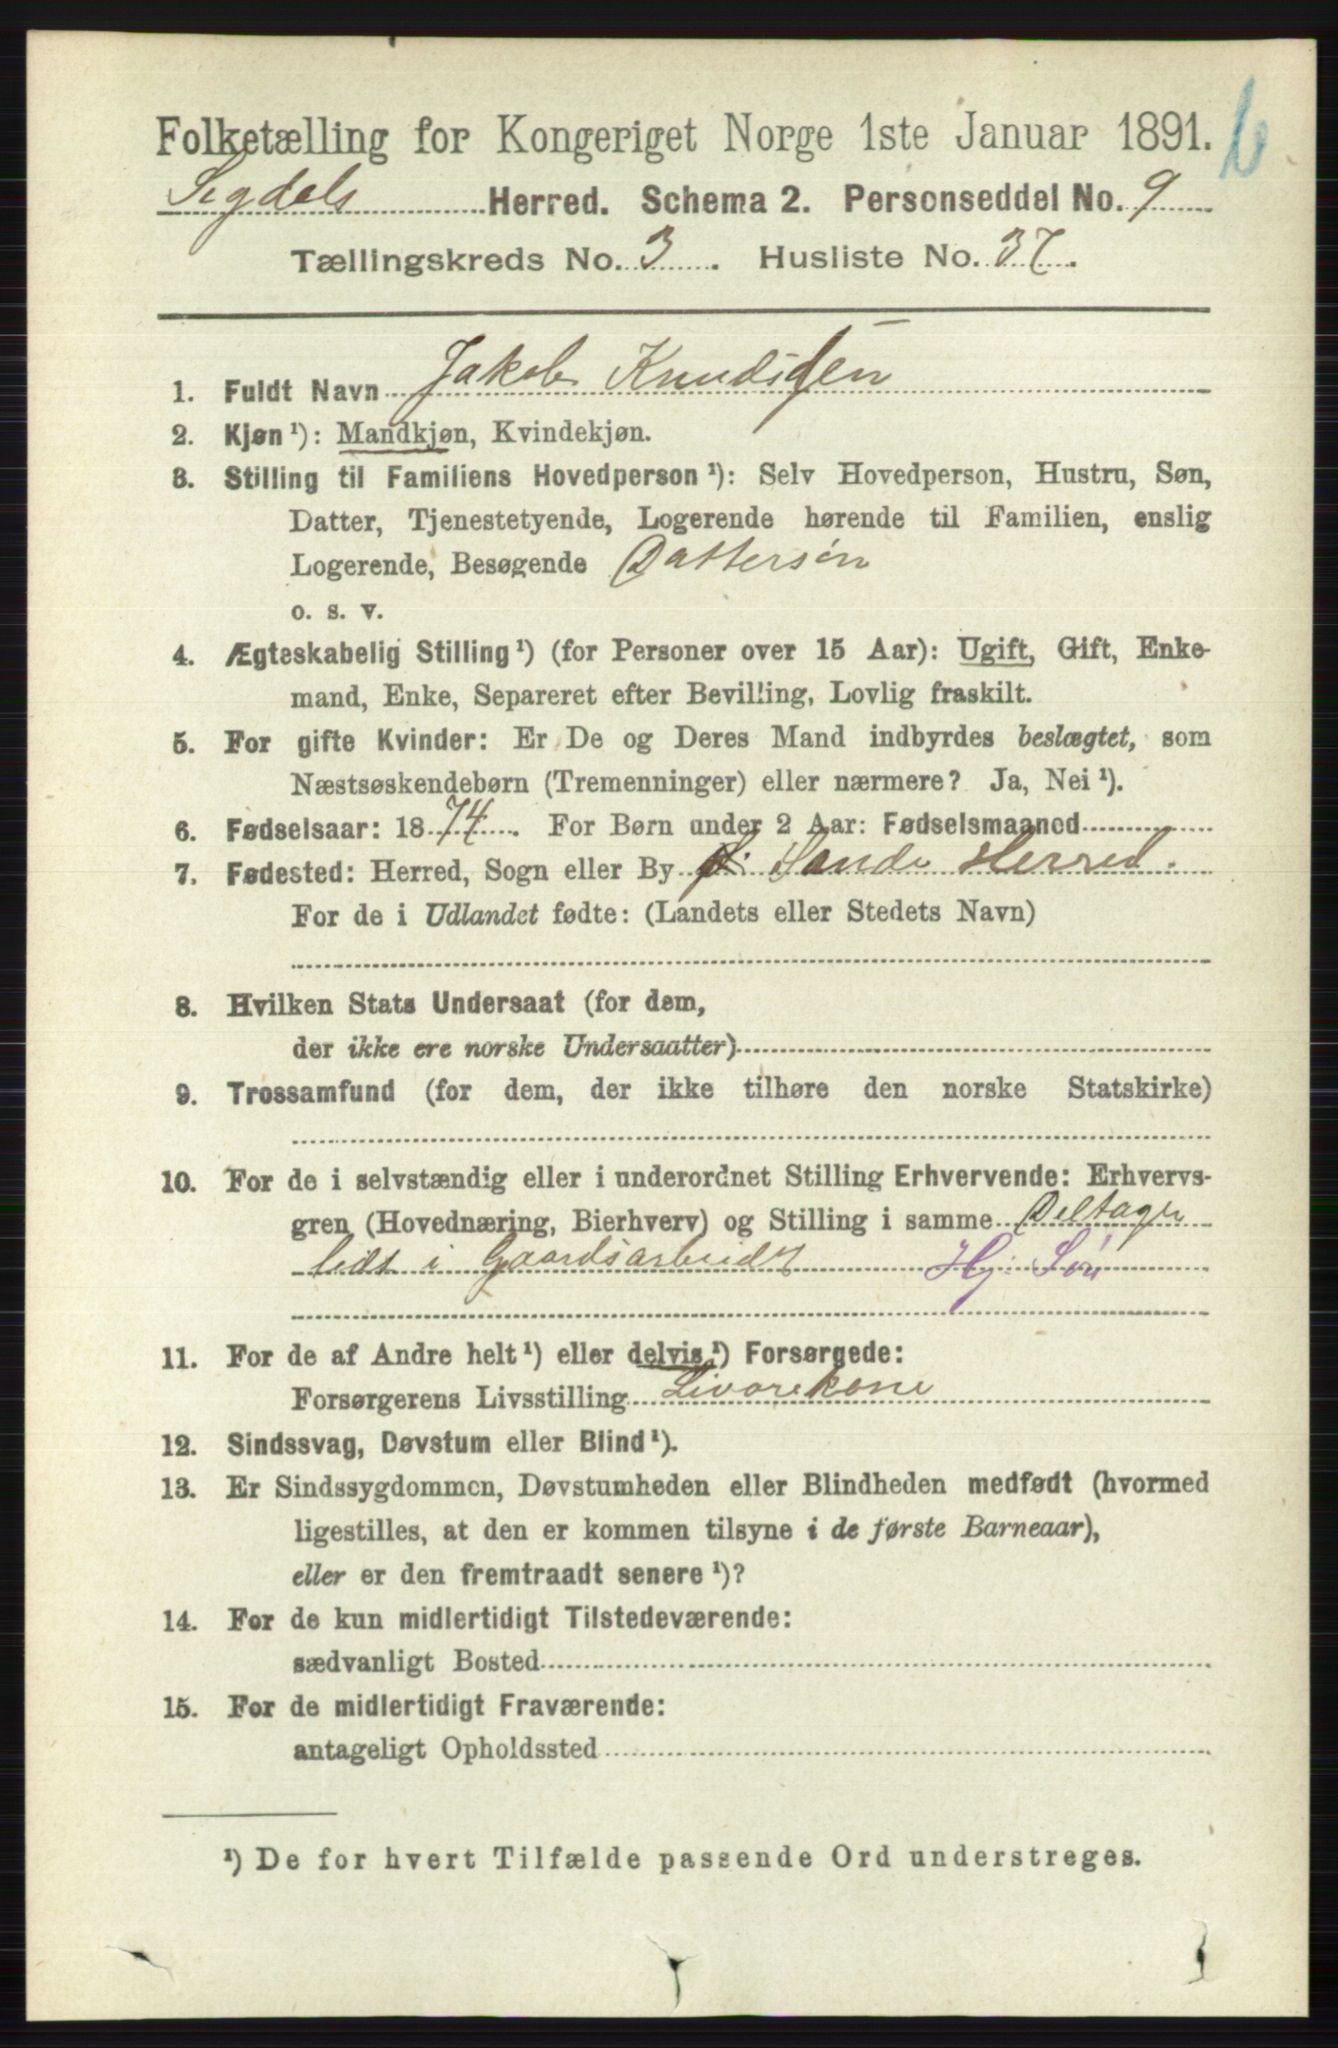 Folketælling for Kongeriget Norge 1ste Januar 1891. 6
Sigdals Herred. Schema 2. Personseddel No. 9
Tællingskreds No. 3. Husliste No. 37.
1. Fuldt Navn Jakob Knudsen
2. Kjøn¹): Mandkjøn, Kvindekjøn.
3. Stilling til Familiens Hovedperson¹): Selv Hovedperson, Hustru, Søn,
Datter, Tjenestetyende, Logerende hørende til Familien, enslig
Logerende, Besøgende Dattersøn
o. s. v.
4. Ægteskabelig Stilling¹) (for Personer over 15 Aar): Ugift, Gift, Enke-
mand, Enke, Separeret efter Bevilling, Lovlig fraskilt.
5. For gifte Kvinder: Er De og Deres Mand indbyrdes beslægtet, som
Næstsøskendebørn (Tremenninger) eller nærmere? Ja, Nei¹).
6. Fødselsaar: 1874. For Børn under 2 Aar: Fødselsmaaned
7. Fødested: Herred, Sogn eller By Sande Herred.
For de i Udlandet fødte: (Landets eller Stedets Navn)
8. Hvilken Stats Undersaat (for dem,
der ikke ere norske Undersaatter)
9. Trossamfund (for dem, der ikke tilhøre den norske Statskirke)
10. For de i selvstændig eller i underordnet Stilling Erhvervende: Erhvervs-
gren (Hovednæring, Bierhverv) og Stilling i samme Deltager
lidt i Gaardsarbeide Hj. Søn
11. For de af Andre helt¹) eller delvis¹) Forsørgede:
Forsørgerens Livsstilling Livørekone
12. Sindssvag, Døvstum eller Blind¹).
13. Er Sindssygdommen, Døvstumheden eller Blindheden medfødt (hvormed
ligestilles, at den er kommen tilsyne i de første Barneaar),
eller er den fremtraadt senere¹)?
14. For de kun midlertidigt Tilstedeværende:
sædvanligt Bosted
15. For de midlertidigt Fraværende:
antageligt Opholdssted
¹) De for hvert Tilfælde passende Ord understreges.